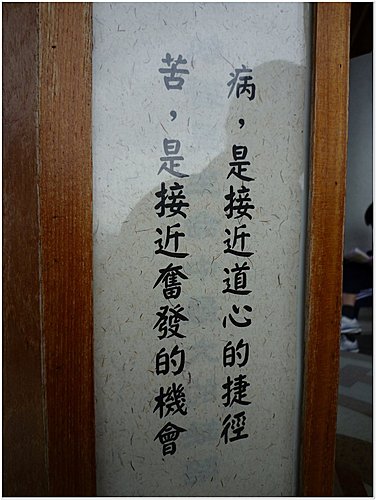 病，是接近道心的捷徑
苦，是接近奮發的機會